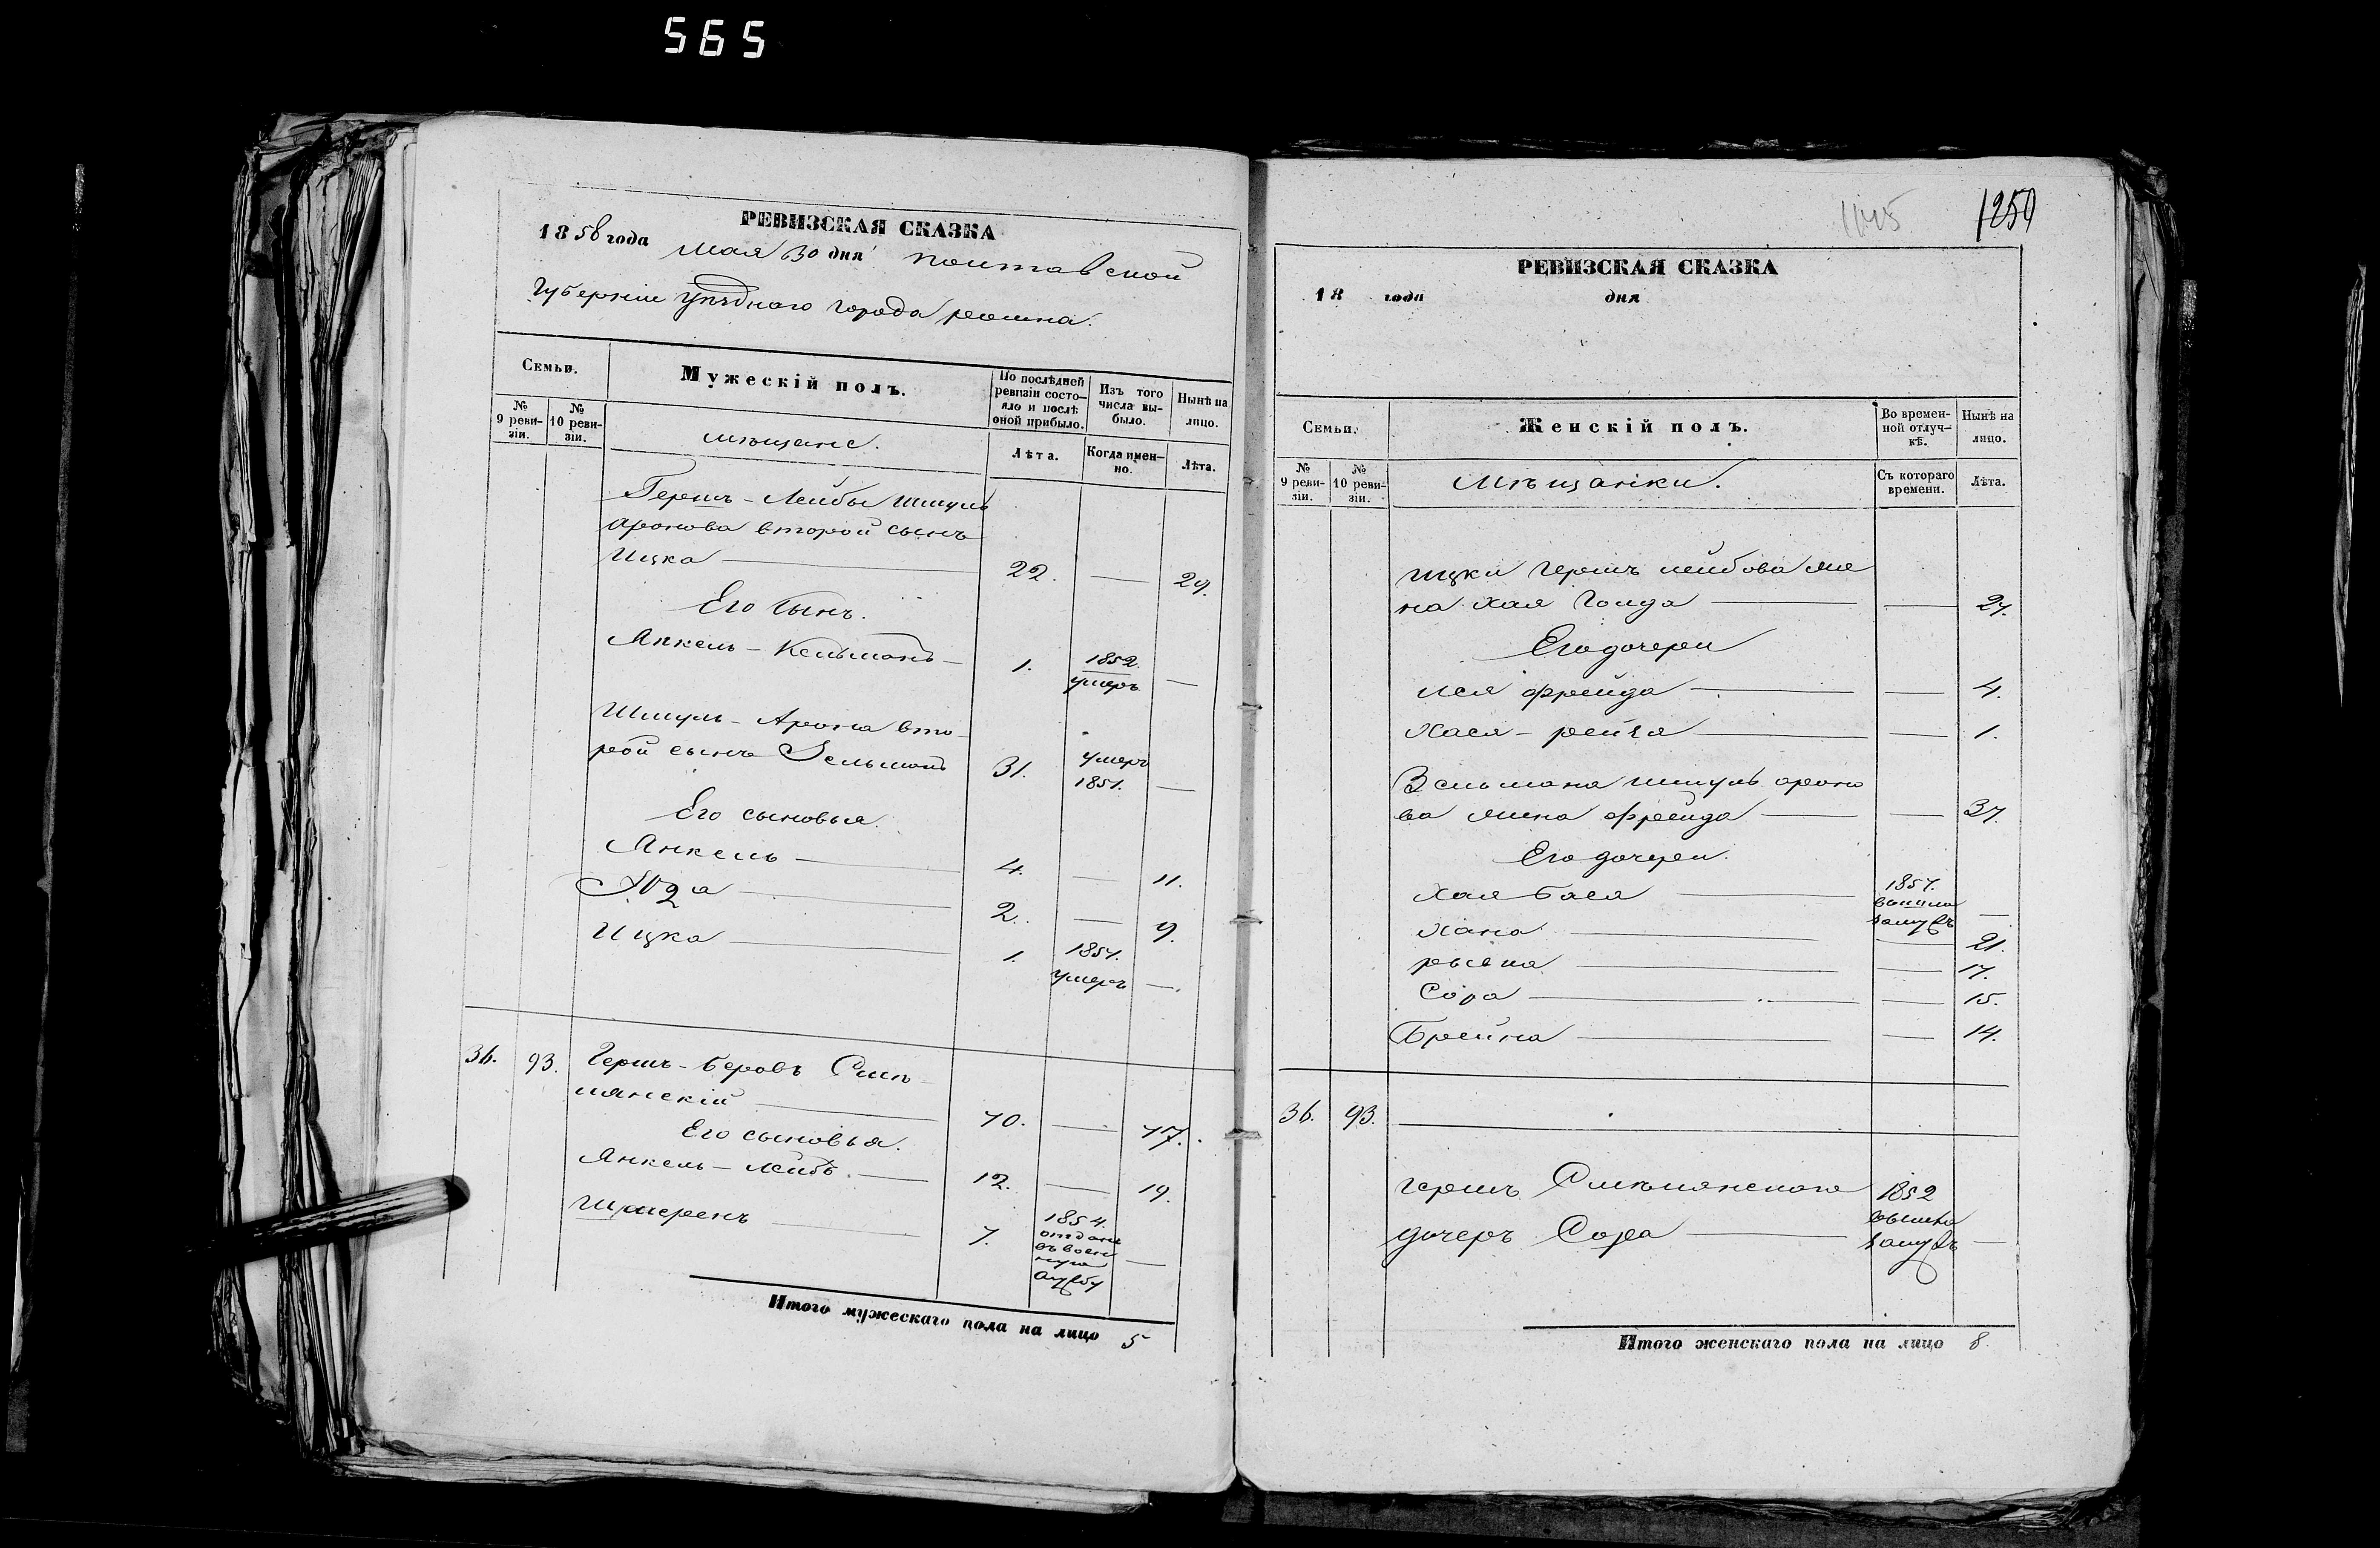 565
РЕВИЗСКАЯ СКАЗКА
1858 года мая 30 дня полтавской
Губерніи уѣзднаго города
Семьи.
Мужескій полъ.
По послѣдней ревизіи состояло и послѣ оной прибыло.
Изъ того числа выбыло.
Нынѣ на лицо.
№ 9 ревизіи.
№ 10 ревизіи.
мѣщане.
Лѣта.
Когда именно.
Лѣта.
Гершъ-Лейбы Шмуль
Аронова второй сынъ
Ицка 22. 29.
Его сынъ.
Янкель-Кельманъ 1. 1852. умеръ
Шмуль-Арона вто
рой сынъ Зельманъ 31. умеръ 1851.
Его сыновья.
Янкель 4. 11.
2. 9.
Ицка 1. 1857. умеръ
36. 93. Гершъ-Беровъ Смѣ
лянскій 70. 77.
Его сыновья.
Янкель-Лейба 12. 19.
7. 1854. отданъ въ воен ную службу
Итого мужескаго пола на лицо 5
1250
РЕВИЗСКАЯ СКАЗКА
18 года дня
Семьи.
Женскій полъ.
Во временной отлучкѣ.
Нынѣ на лицо.
№ 9 ревизіи.
№ 10 ревизіи.
Мѣщанки.
Съ котораго времени.
Лѣта.
Ицки Гершъ лейбова же
на Хая Голда 27.
Его дочери
Лея фрейда 4.
Хася-рейзя 1.
Зельмана шмуль ароно
ва жена фрейда 37.
Его дочери.
Хая Бася 1857. вышла замужъ
Хана 21.
17.
Сора 15.
Брейна 14.
36. 93.
Гершъ Смѣлянскаго 1852
дочерь Сора вышла замужъ
Итого женскаго пола на лицо 8.